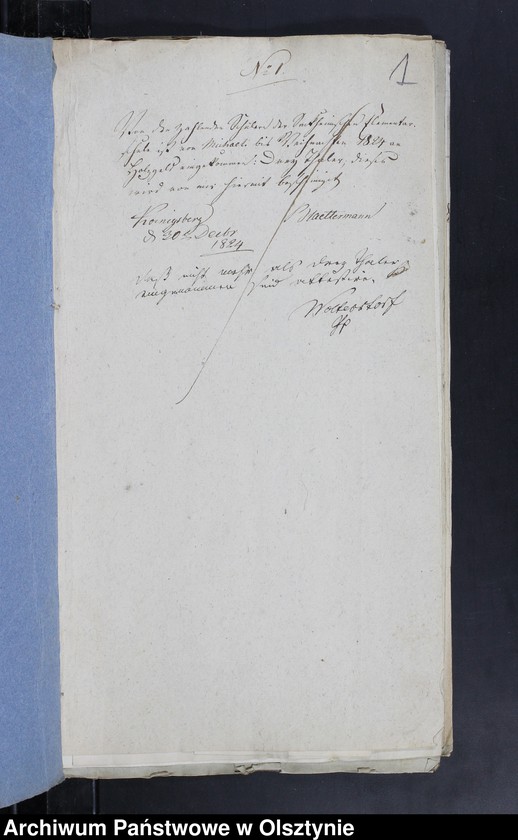 No 1.
1
Von den zahlenden Schülern der Sackheimschen Elementar-
schule ist von Michaeli bis Weihnachten 1824 an
Holzgeld eingekommen: Drey Thaler, dieses
wird von mir hiermit bescheinigt
Koenigsberg
d 30 Decbr
1824
Waettermann
Daß nicht mehr als drey Thaler
eingenommen sind attestire
Woltersdorf
Archiwum Państwowe w Olsztynie